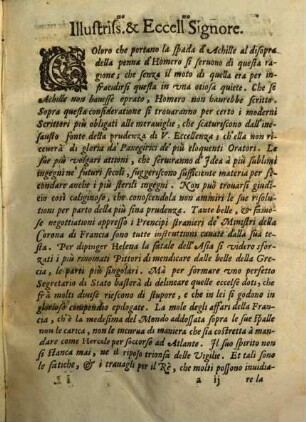 Illustriss.mo & Eccell.mo Signore.
COloro che portano la spada d'Achille al disopra
della penna d'Homero si seruono di questa ra-
gione; che senza il moto di quella era per in-
fracidirsi questa in vna otiosa quiete. Che se
Achille non hauesse oprato, Homero non haurebbe scritto.
Sopra questa consideratione si trouaranno per certo i moderni
Scrittori più obligati alle merauiglie, che scaturiscono dall'in-
fausto fonte della prudenza di V. Eccellenza; ch'ella non ri-
ceuerà di gloria da' Panegirici de' più eloquenti Oratori. Le
sue più volgari attioni, che seruiranno d'Idea à più sublimi
ingegni ne' futuri secoli, suggeriscono sufficiente materia per fe-
condare anche i più sterili ingegni. Non può trouarsi giudi-
cio così caliginoso, che conoscendola non ammiri le sue riso-
lutioni per parto della più fina prudenza. Tante belle, & famo-
se negotiationi appresso i Prencipi stranieri de' Ministri della
Corona di Francia sono tutte instruttioni canate dalla sua te-
sta. Per dipinger Helena la fatale dell'Asia si videro sfor-
zati i più rinomati Pittori di mendicare dalle belle della Gre-
cia, le parti più singolari. Mà per formare vno perfetto
Segretario di Stato basterà di delineare quelle eccelse doti, che
frà molti diuise riescono di stupore, e che in lei si godono in
glorioso compendio epilogate. La mole degli affari della Fran-
cia, ch'è la medesima del Mondo addossata sopra le sue spalle
non le carica, non le incurua di maniera che sia costretta à man-
dare come Hercole per soccorso ad Atlante. Il suo spirito non
si stanca mai, ne il riposo trionfa delle Vigilie. Et tali sono
le fatiche, & i trauagli per il Rè, che molti possono inuidia-
a ij re la